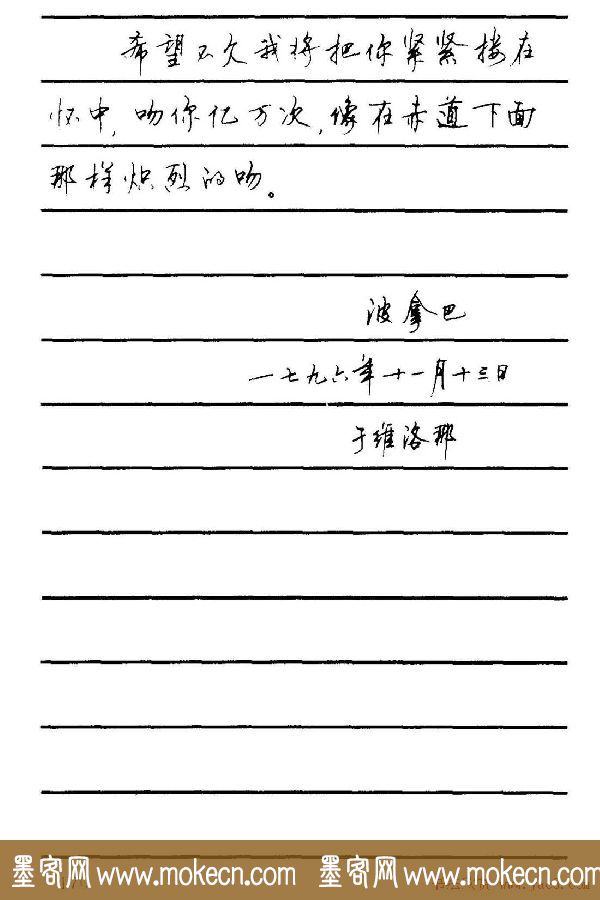 希望不久我将把你紧紧搂在
怀中,吻你亿万次,像在赤道下面
那样炽烈的吻。
波拿巴
一七九六年十一月十三日
于维洛那
墨客网 www.mokecn.com 墨客网 www.mokecn.com